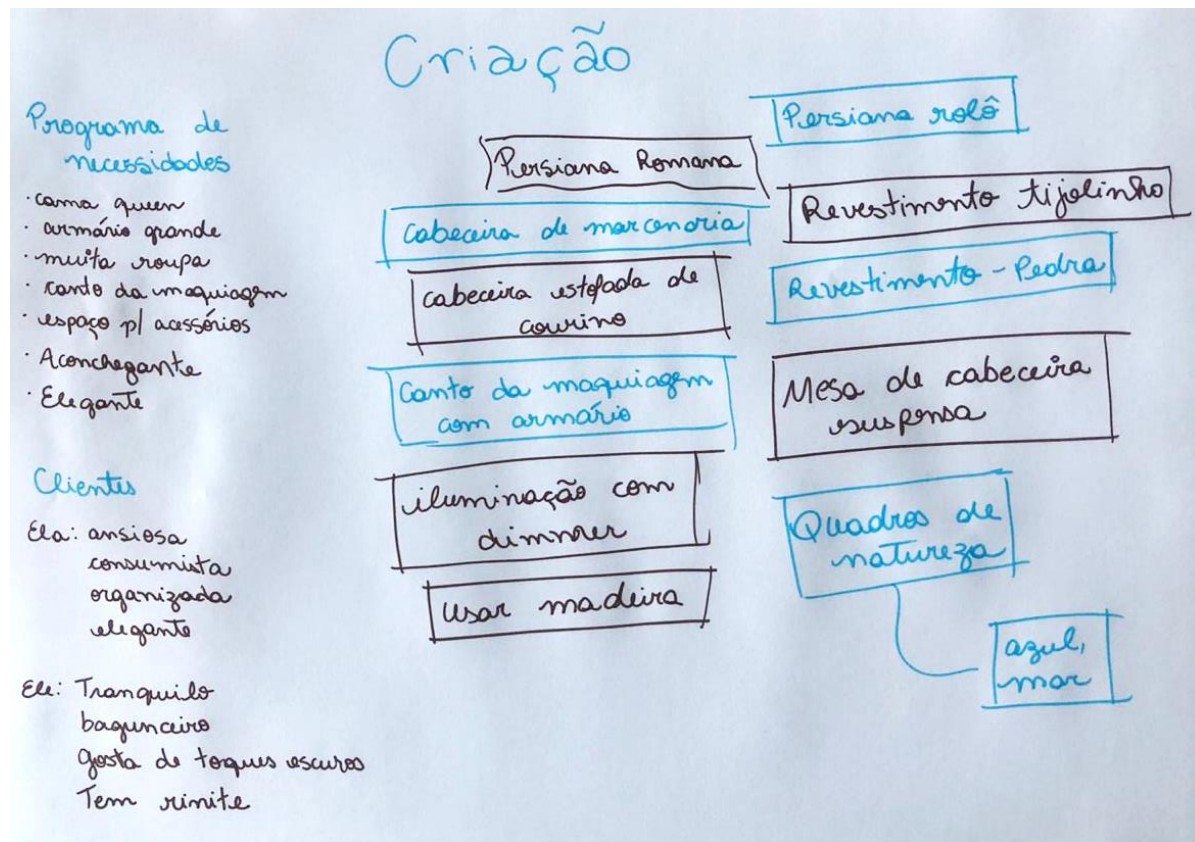 Criação
Programa de
necessidades
· cama queen
· armário grande
· muita roupa
· canto da maquiagem
· espaço p/ acessórios
· Aconchegante
· Elegante
Clientes
Ela: ansiosa
consumista
organizada
elegante
Ele: Tranquilo
bagunceiro
gosta de toques escuros
Tem rinite
Persiana Romana
Cabeceira de marcenaria
cabeceira estofada de
courino
Canto da maquiagem
com armário
iluminação com
dimmer
usar madeira
Persiana rolô
Revestimento tijolinho
Revestimento - Pedra
Mesa de cabeceira
suspensa
Quadros de
natureza
azul,
mar